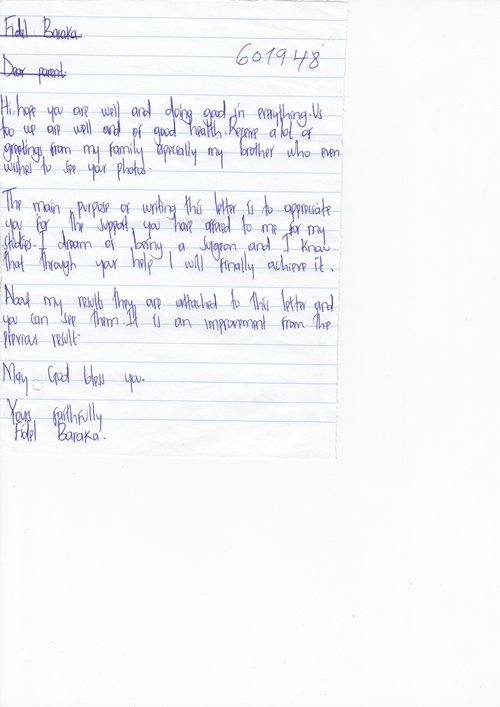 Fidel Baraka
601948
Dear parent.
Hi, hope you are well and doing good in everything. Us
too we are well and of good health. Receive a lot of
greetings from my family especially my brother who even
wishes to see your photos.
The main purpose of writing this letter is to appreciate
you for the support you have offered to me for my
studies. I dream of being a surgeon and I know
that through your help I will finally achieve it.
About my results they are attached to this letter and
you can see them. It is an improvement from the
previous result.
May God bless you.
Yours faithfully
Fidel Baraka.